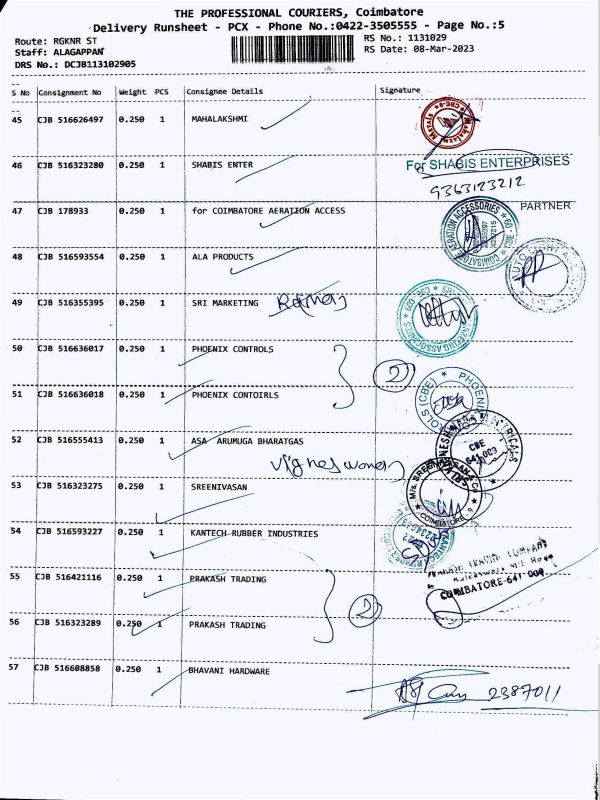 THE PROFESSIONAL COURIERS, Coimbatore
Delivery Runsheet - PCX - Phone No.:0422-3505555 - Page No.:5
Route: RGKNR ST
RS No.: 1131029
Staff: ALAGAPPAN
RS Date: 08-Mar-2023
DRS No.: DCJB113102905
S No Consignment No Weight PCS Consignee Details Signature
45 CJB 516626497 0.250 1 MAHALAKSHMI
46 CJB 516323280 0.250 1 SHABIS ENTER
For SHABIS ENTERPRISES
9363123212
PARTNER
47 CJB 178933 0.250 1 for COIMBATORE AERATION ACCESS
48 CJB 516593554 0.250 1 ALA PRODUCTS
49 CJB 516355395 0.250 1 SRI MARKETING
50 CJB 516636017 0.250 1 PHOENIX CONTROLS
2
51 CJB 516636018 0.250 1 PHOENIX CONTOIRLS
52 CJB 516555413 0.250 1 ASA ARUMUGA BHARATGAS
CBE
641 009
53 CJB 516323275 0.250 1 SREENIVASAN
54 CJB 516593227 0.250 1 KANTECH RUBBER INDUSTRIES
PRAKASH TRADING COMPANY
COIMBATORE-641 009
55 CJB 516421116 0.250 1 PRAKASH TRADING
2
56 CJB 516323289 0.250 1 PRAKASH TRADING
57 CJB 516608858 0.250 1 BHAVANI HARDWARE
2387011